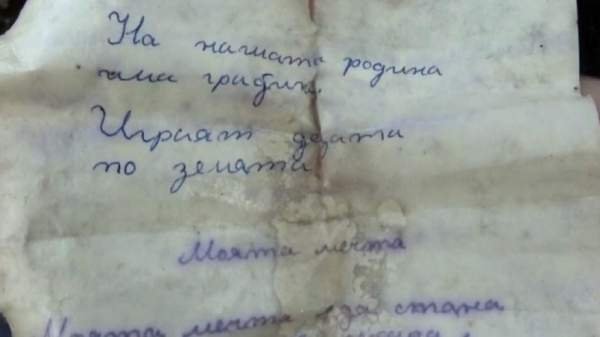 На нашата родина
има
Играят децата
по земята
Моята мечта
Моята мечта е да стана